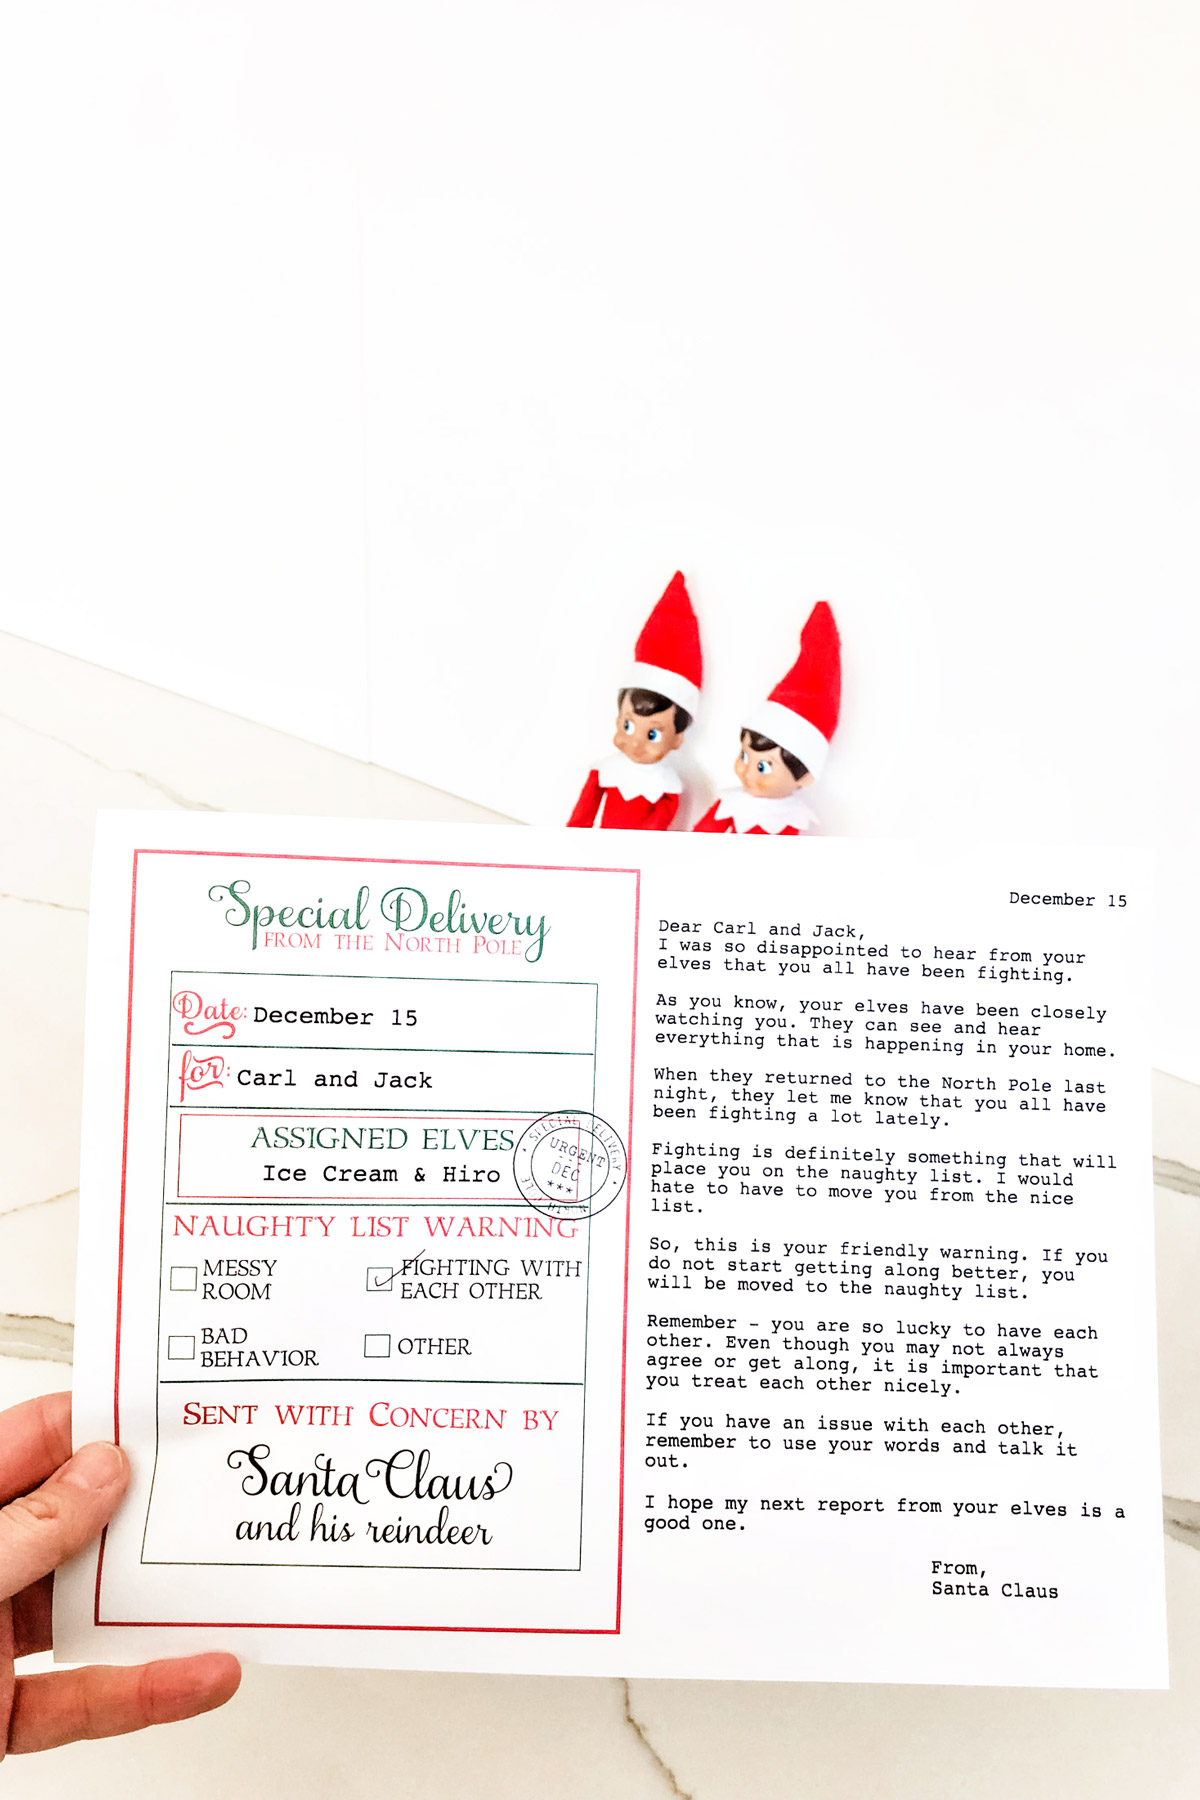 Special Delivery
FROM THE NORTH POLE
Date: December 15
for: Carl and Jack
ASSIGNED ELVES
Ice Cream & Hiro
SPECIAL DELIVERY
URGENT
DEC
***
NAUGHTY LIST WARNING
MESSY
ROOM
FIGHTING WITH
EACH OTHER
BAD
BEHAVIOR
OTHER
SENT WITH CONCERN BY
Santa Claus
and his reindeer
December 15
Dear Carl and Jack,
I was so disappointed to hear from your
elves that you all have been fighting.
As you know, your elves have been closely
watching you. They can see and hear
everything that is happening in your home.
When they returned to the North Pole last
night, they let me know that you all have
been fighting a lot lately.
Fighting is definitely something that will
place you on the naughty list. I would
hate to have to move you from the nice
list.
So, this is your friendly warning. If you
do not start getting along better, you
will be moved to the naughty list.
Remember – you are so lucky to have each
other. Even though you may not always
agree or get along, it is important that
you treat each other nicely.
If you have an issue with each other,
remember to use your words and talk it
out.
I hope my next report from your elves is a
good one.
From,
Santa Claus